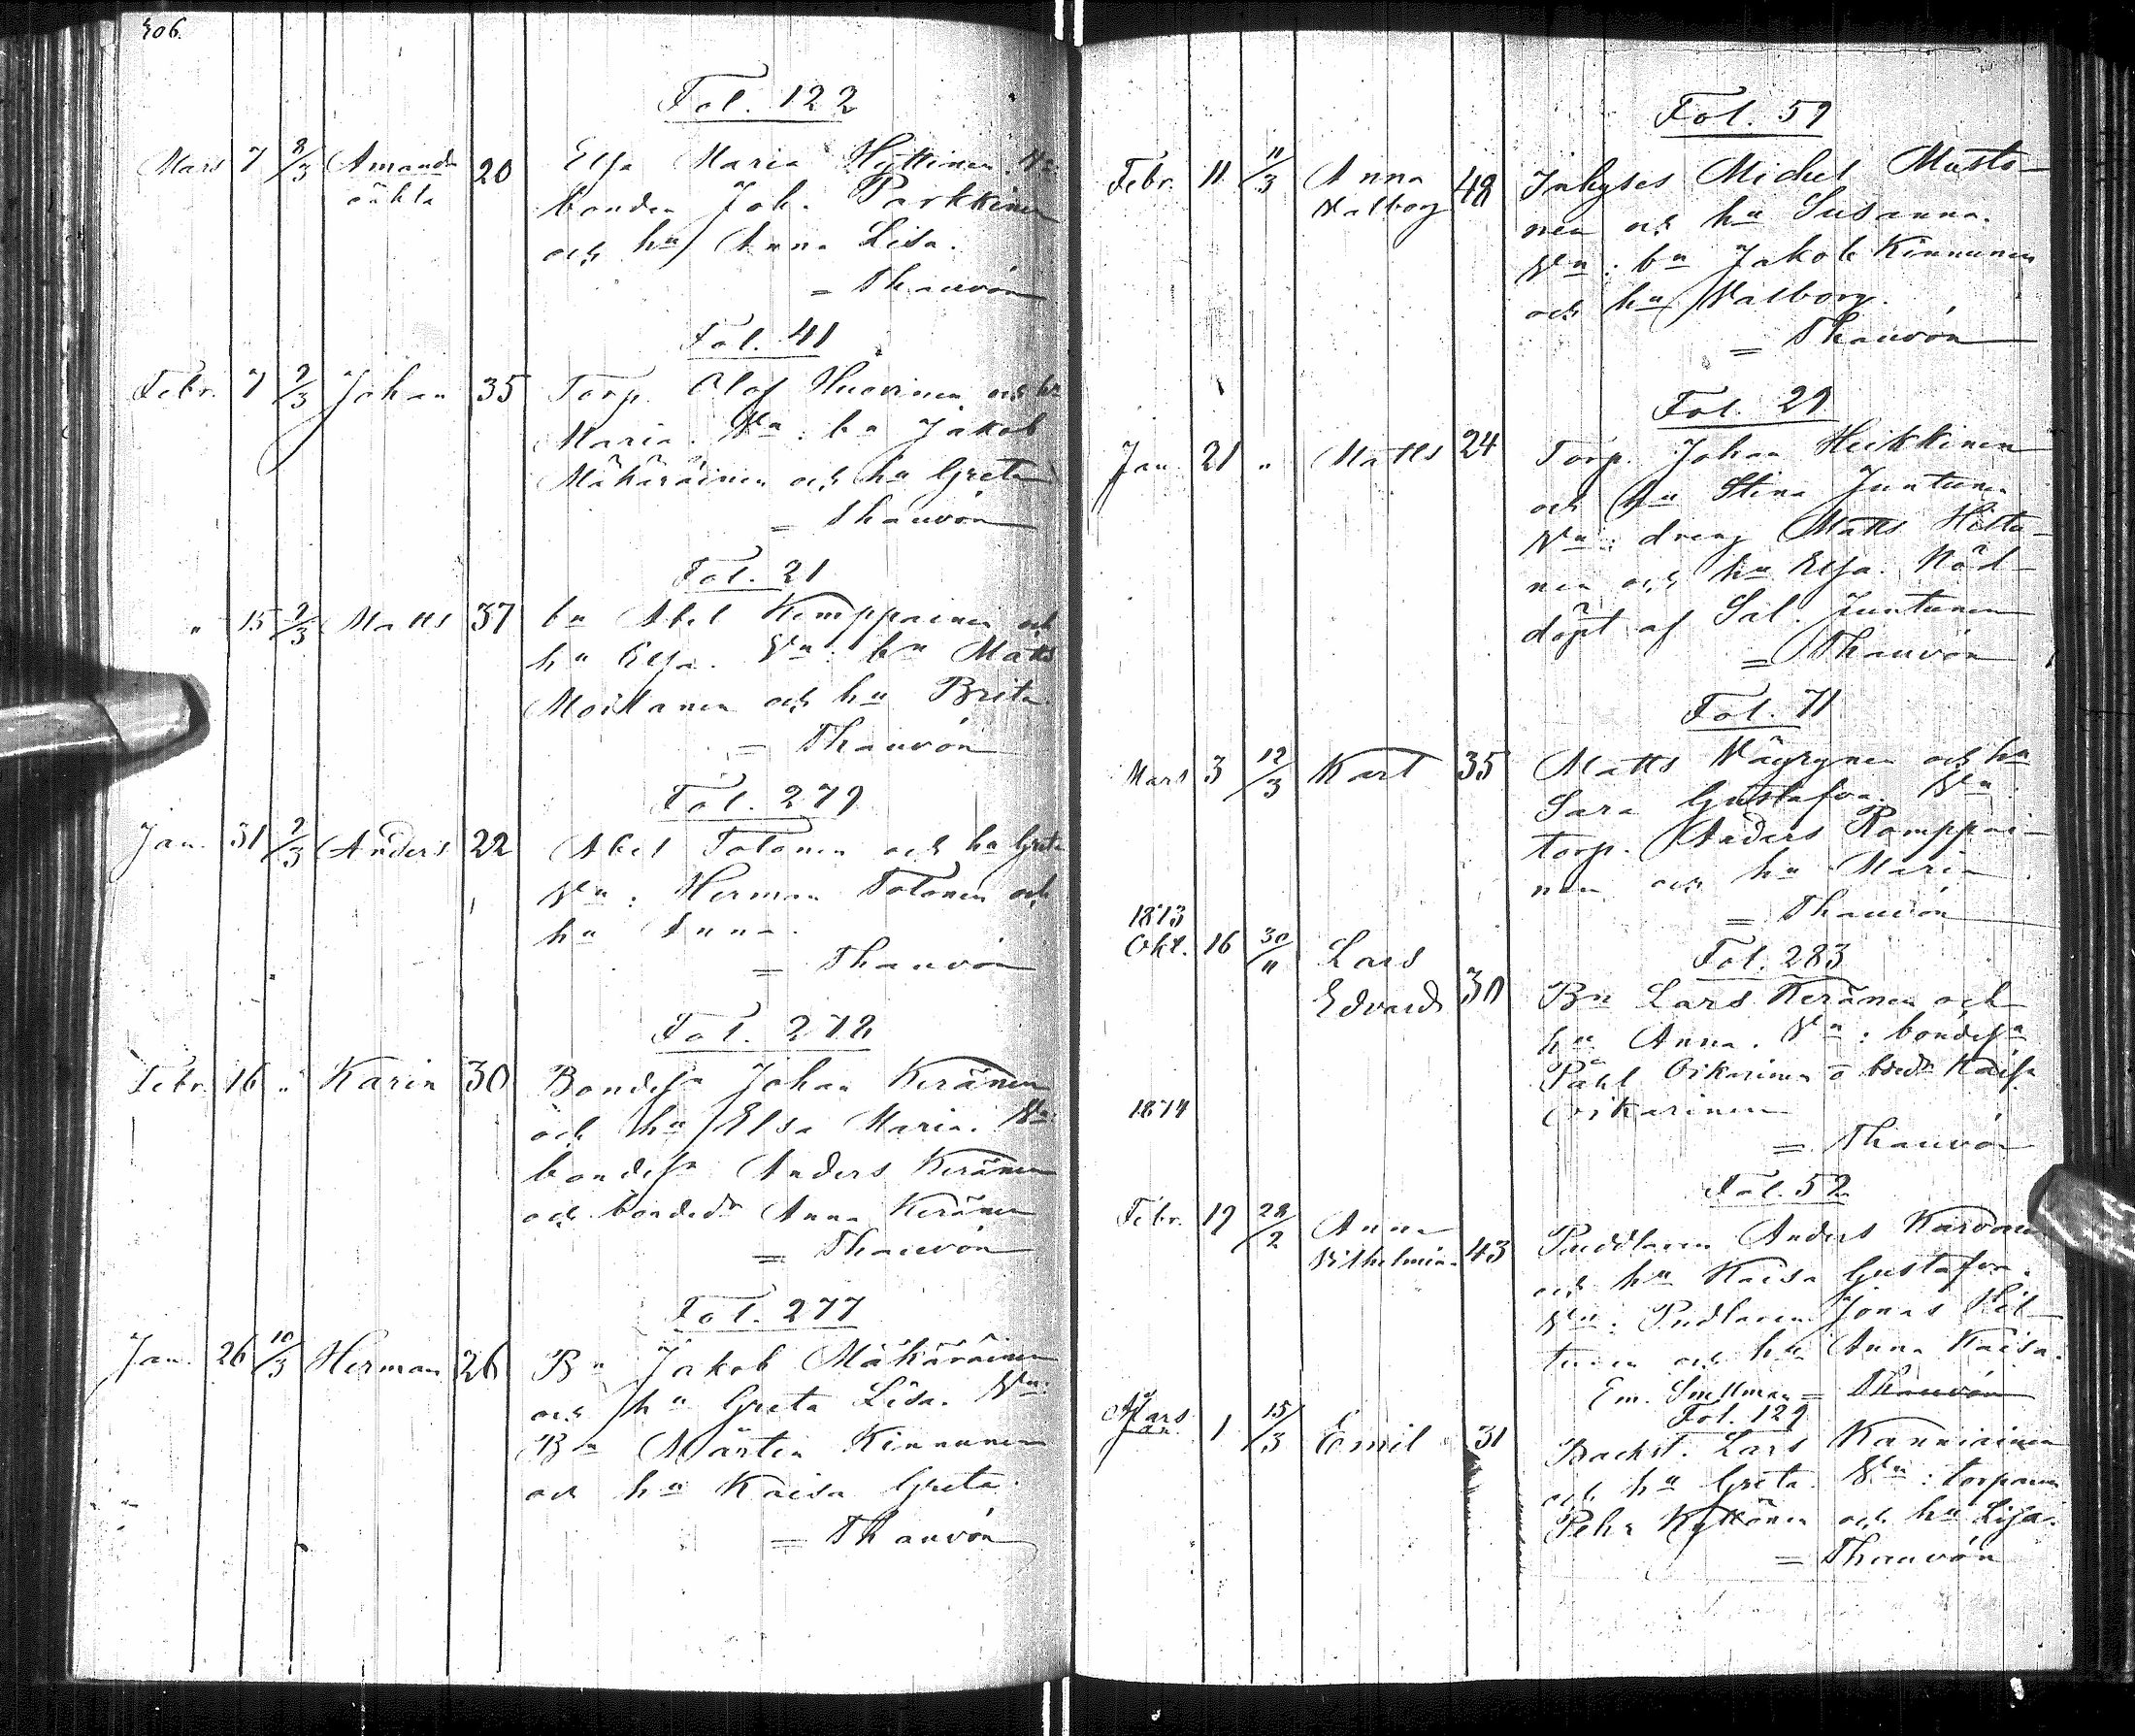 306.
Fol. 122
Mars 7 8/3 Amanda 20 Elsa Maria Hyttinen. Vn:
oäkta bonden Joh. Parkkinen
och hu Anna Lisa.
= Thauvón
Fol. 41
Febr. 7 9/3 Johan 35 Torp. Olof Huovinen och hu
Maria. Vn: bn Jakob
Mäkäräinen och hu Greta
= Thauvón
Fol. 21
" 15 9/3 Matts 37 bn Abel Kemppainen och
hu Elsa. Vn: bn Matts
Moilanen och hu Brita.
= Thauvón
Fol. 279
Jan. 31 9/3 Anders 22 Abel Tolonen och hu Greta
Vn: Herman Tolonen och
hu Anna.
= Thauvón
Fol. 272
Febr. 16 " Karin 30 Bondesn Johan Keränen
och hu Elsa Maria. Vn:
bondesn Anders Keränen
och bondedr Anna Keränen
= Thauvón
Fol. 277
Jan. 26 10/3 Herman 26 Bn Jakob Mäkäräinen
och hu Greta Lisa. Vn:
Bn Mårten Kinnunen
och hu Kaisa Greta.
= Thauvón
Fol. 59
Febr. 11 11/3 Anna 48 Inhyses Michel Musto-
Valborg nen och hu Susanna.
Vn: bn Jakob Kinnunen
och hu Valborg.
= Thauvón
Fol. 29
Jan. 21 " Matts 24 Torp. Johan Heikkinen
och hu Stina Juntunen
Vn: dreng Matts
nen och hu Elsa. Nöd-
döpt af Sal. Juntunen
= Thauvón
Fol. 71
Mars 3 12/3 Karl 35 Matts Väyrynen och hu
Sara Gustafva. Vn:
torp. Anders Romppai-
nen och hu Maria
= Thauvón
1873
Okt. 16 30/11 Lars Fol. 283
Edvard 30 Bn Lars Keränen och
hu Anna. Vn: bondesn
Påhl Oikarinen o bdedr Kaisa
1874 Oikarinen
= Thauvón
Fol. 52
Febr. 19 28/2 Anna
Vilhelmina 43 Puddlaren Anders Karvonen
och hu Kaisa Gustafva.
Vn: Pudlaren Jonas Hil-
tunen och hu Anna Kaisa.
Em. Snellman = Thauvón
Fol. 129
Mars
Jan. 1 15/3 Emil 31 Backst. Lars Kanniainen
och hu Greta. Vn: torparen
Pehr Kyllönen och hu Lisa.
= Thauvón